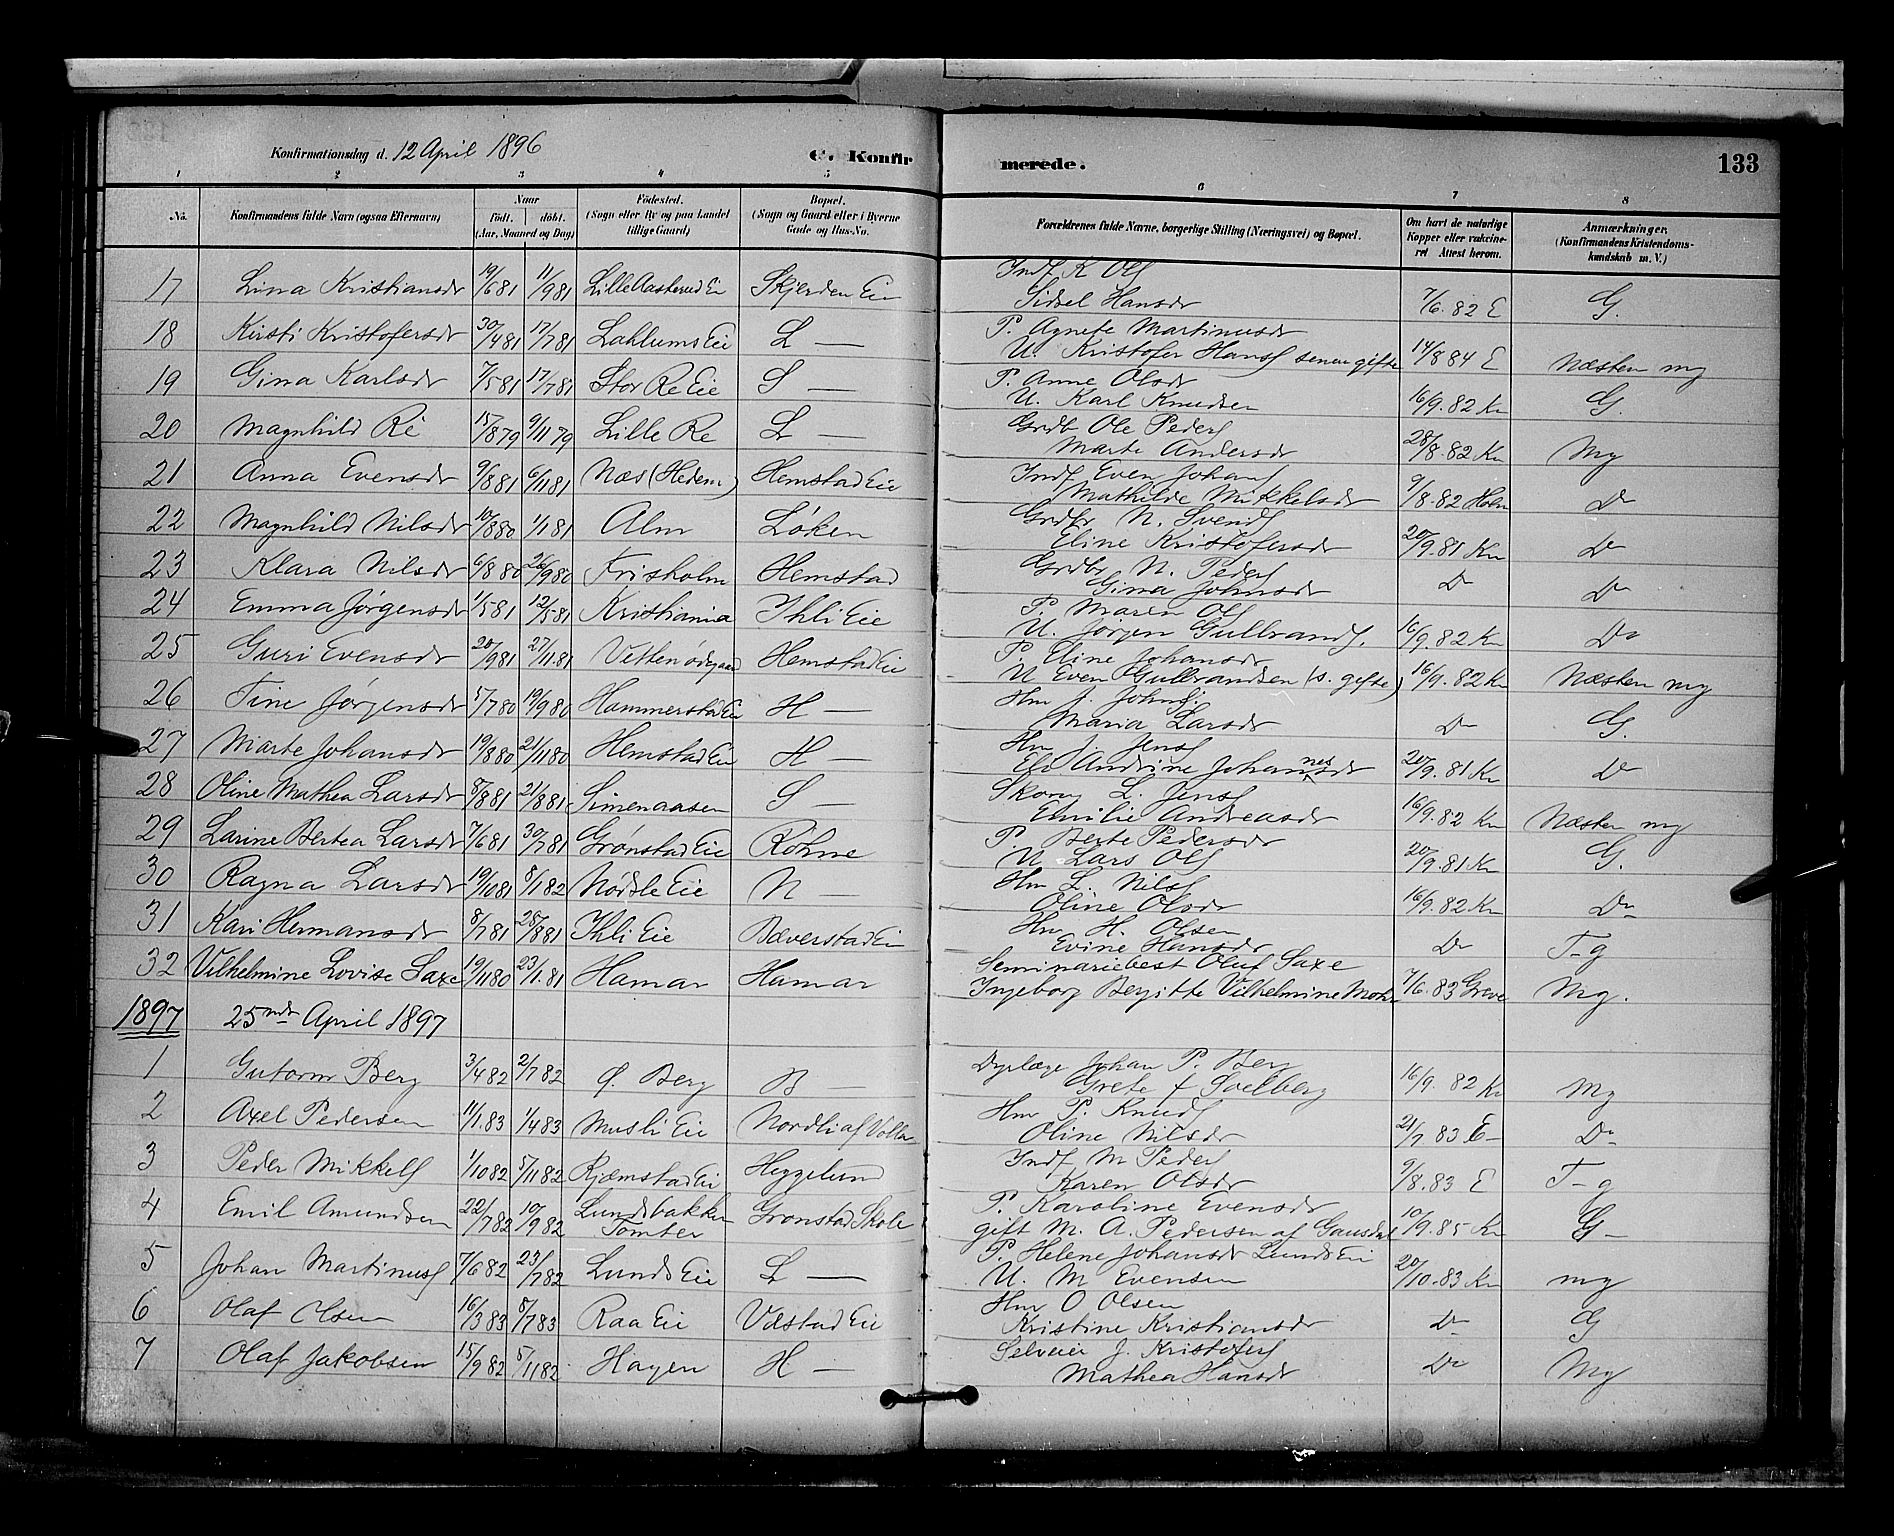 Konfirmationsdag d. 12 April 1896 C. Konfirmerede. 133
1 2 3 4 5 6 7 8
No. Konfirmandens fulde Navn (ogsaa Efternavn) Naar født. døbt. (Aar, Maaned og Dag) Fødested. (Sogn eller By og paa Landet tillige Gaard) Bopæl. (Sogn og Gaard eller i Byerne Gade og Hus-No. Forældrenes fulde Navne, borgerlige Stilling (Næringsvei) og Bopæl. Om havt de naturlige Kopper eller vakcineret Attest herom. Anmærkninger. (Konfirmandens Kristendomskundskab m. V.)
17 Lina Kristiansdr 19/6 81 11/9 81 Lille Aasterud Ei Skjerden Eie Indf K Ols
Sidsel Hansdr 7/6. 82 E G.
18 Kirsti Kristofersdr 30/4 81 17/7 81 Lahlums Eie L — P. Agnete Martinusdr
U. Kristofer Hans senere gifte 14/8 84 E Næsten mg
19 Gina Karlsdr 7/5 81 17/7 81 Stor Re Eie S — P. Anne Olsdr
U. Karl Knudsen 16/9. 82 Kn G.
20 Magnhild Re 15/8 79 9/11 79 Lille Re L — Grdbr Ole Peders
Marte Andersdr 28/8. 82 Kn Mg
21 Anna Evensdr 9/8 81 6/11 81 Næs (Hedem) Hemstad Eie Indf Even Johans
Mathilde Mikkelsdr 9/8. 82 Holm Do
22 Magnhild Nilsdr 10/8 80 1/1 81 Alm Løken Grdbr N. Svends
Eline Kristofersdr 20/9. 81 Kn Do
23 Klara Nilsdr 6/8 80 26/9 80 Frisholm Hemstad Grdbr N. Peders
Gina Johnsdr Do Do
24 Emma Jørgensdr 1/5 81 12/5 81 Kristiania Ihli Eie P. Maren Ols
U. Jørgen Gulbrands. 16/9. 82 Kn Do
25 Guri Evensdr 20/9 81 27/11. 81 Vetten ødegaard Hemstad Eie P. Eline Johansdr
U Even Gulbrandsen (s. gifte) 16/9. 82 Kn Næsten mg
26 Tine Jørgensdr 5/7 80 19/9 80 Hammerstad Ei H — Hm J. Johns.
Maria Larsdr Do G.
27 Marte Johansdr 19/8 80 21/11 80 Hemstad Ei H — Hm J. Jens
Andrine Johannesdr 20/9. 81 Kn Do
28 Oline Mathea Larsdr 5/8 81 21/8 81 Simenaasen S — Skom L. Jens
Emilie Andreasdr 16/9. 82 Kn Næsten mg
29 Larine Bertea Larsdr 7/6 81 30/7 81 Grønstad Eie Røhne P. Berte Pedersdr
U Lars Ols 20/9. 81 Kn G.
30 Ragna Larsdr 19/10 81 8/1 82 Nødsle Eie N — Hm L. Nils
Oline Olsdr 16/9. 82 Kn Do
31 Kari Hermansdr 8/7 81 28/8 81 Ihli Eie Bæverstad Ei Hm H. Olsen
Evine Hansdr Do T-g
32 Vilhelmine Lovise Saxe 19/11 80 23/1. 81 Hamar Hamar Seminariebest Oluf Saxe
Ingeborg Bergitte Vilhelmine 7/6. 83 Greve Mg.
1897 25nde April 1897
1 Gutorm Berg 3/4 82 2/7 82 Ø. Berg B — Dyrlæge Johan P. Berg
Grete f Solberg 16/9. 82 Kn Mg
2 Axel Pedersen 11/1. 83 1/4 83 Musli Eie Nordli af Volla Hm P. Knuds
Oline Nilsdr 21/7 83 E- Do
3 Peder Mikkels 1/10 82 5/11 82 Rjæmstad Ei Heggelund Indf M Peders
Karen Olsdr 9/8. 83 E T-g
4 Emil Amundsen 22/7 82 10/9 82 Lundsbakken
Tomter Grønstad Skole P. Karoline Evensdr
gift M. A. Pedersen af Gausdal 10/9. 85 Kn G-
5 Johan Martinus 7/6 82 23/7 82 Lunds Eie L — P. Helene Johansdr Lunds Ei
U. M Evensen 20/10. 83 Kn mg
6 Olaf Olsen 16/3 83 8/7 83 Raa Eie Væstad Eie Hm O Olsen
Kristine Kristiansdr Do G
7 Olaf Jakobsen 15/9 82 5/11 82 Hagen H — Selveier J. Kristofers
Mathea Hansdr Do Mg